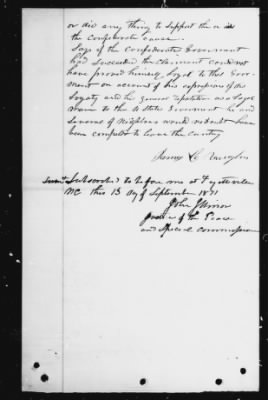 or did any thing to support the
the Confederate cause.
Says if the Confederate Government
had succeeded the claimant could not
have proved himself loyal to that Gov-
ment on account of his expressions of
loyalty and his general reputation as a loyal
man to the U States Government he and
several of neighbors would no doubt have
been compeled to leave the country
James C
Subscribed to before me at Fayetteville
NC this 13 day of September 1871
John
Justice of the Peace
and Special commissioner